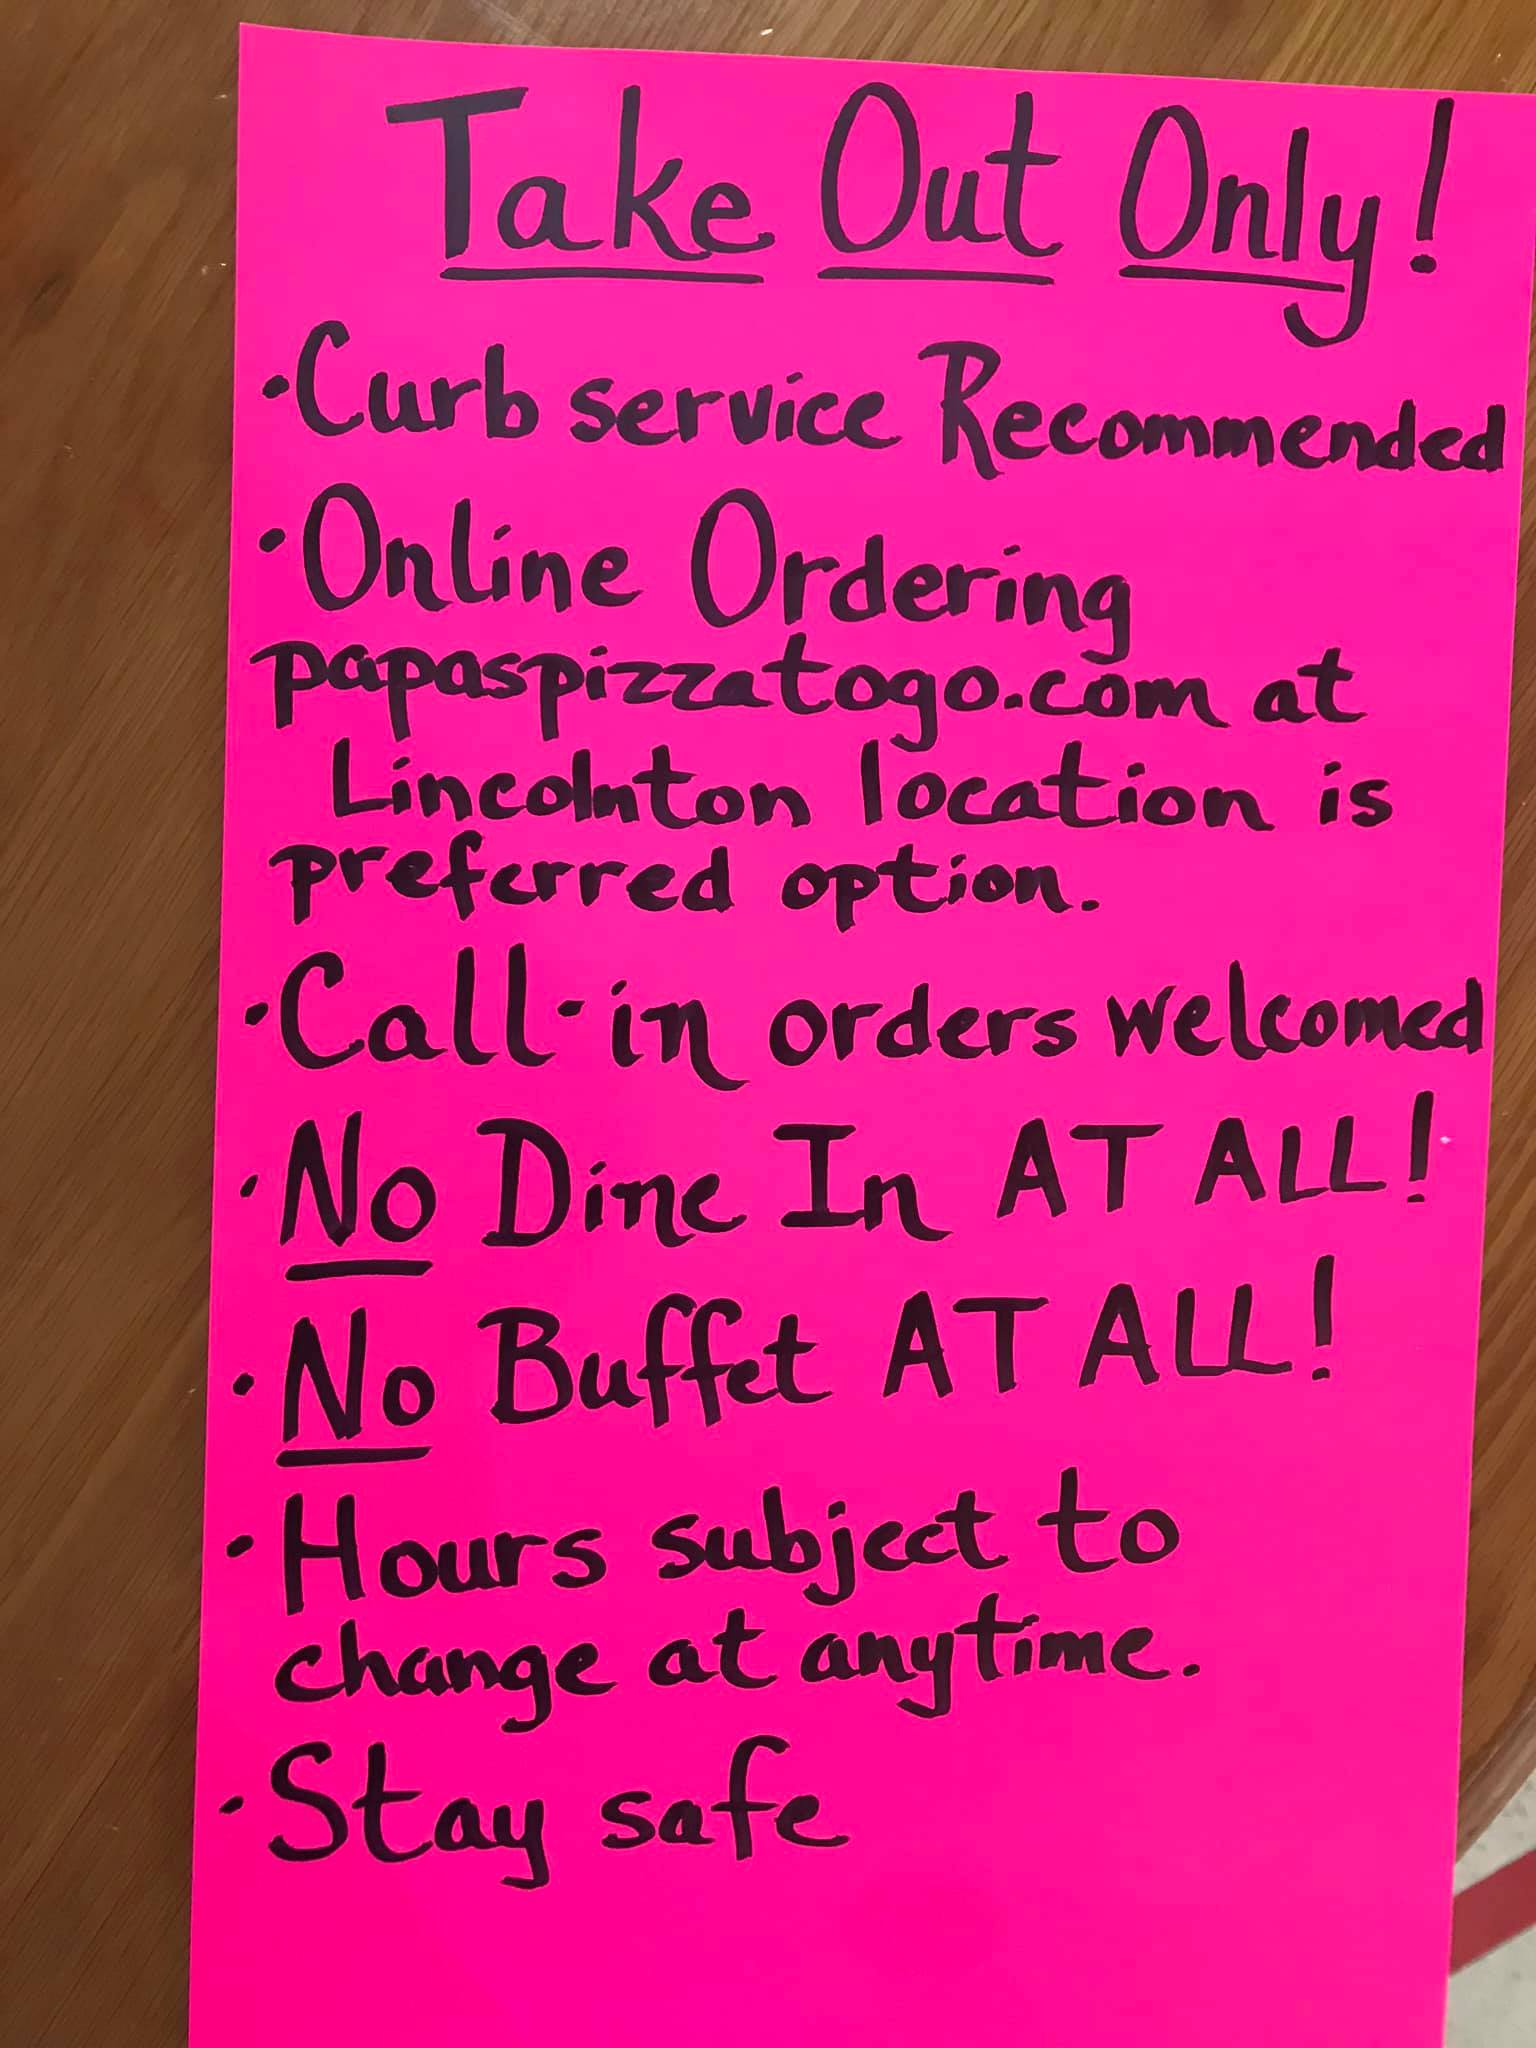 Take Out Only!
·Curb service Recommended
·Online Ordering
papaspizzatogo.com at
Lincolnton location is
preferred option.
·Call-in orders welcomed
·No Dine In AT ALL!
·No Buffet AT ALL!
·Hours subject to
change at anytime.
·Stay safe